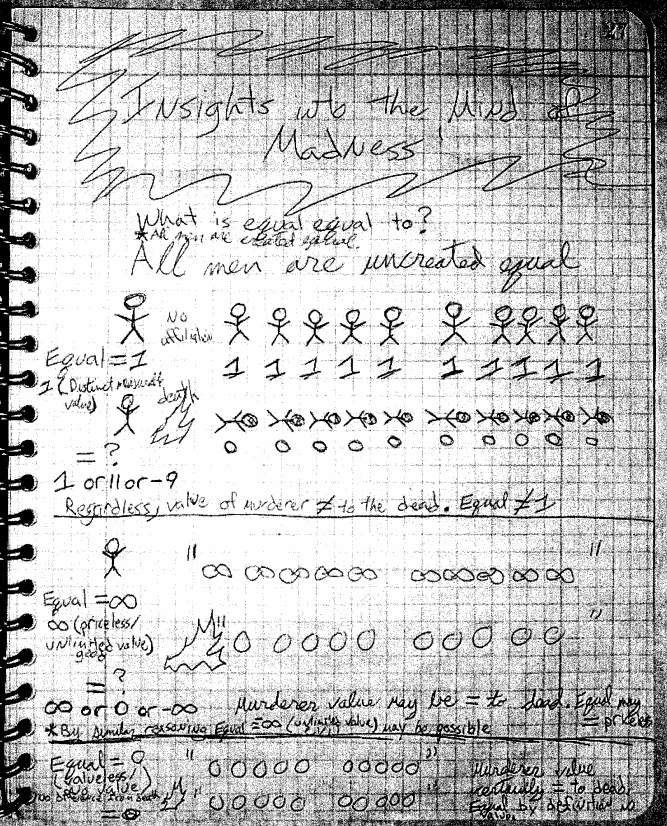 Insights into the Mind of
Madness
What is equal equal to?
*All men are created equal.
All men are uncreated equal
No
affiliation
Equal = 1
1 1 1 1 1 1 1 1 1 1
1 (Distinct
value)
death
0 0 0 0 0 0 0 0 0 0
= ?
1 or 11 or -9
Regardless, value of murderer ≠ to the dead. Equal ≠ 1
" ∞ ∞ ∞ ∞ ∞ ∞ ∞ ∞ ∞ ∞ "
Equal = ∞
∞ (priceless/
unlimited value)
good
" 0 0 0 0 0 0 0 0 0 0 "
= ?
∞ or 0 or -∞
Murderer value may be = to dead. Equal may
= priceless
*By similar reasoning Equal = -∞ (unlimited value) may be possible
Equal = 0
" 0 0 0 0 0 0 0 0 0 0 "
(valueless/
no value)
no difference from death
" 0 0 0 0 0 0 0 0 0 0 "
= 0
Murderer value
certainly = to dead,
Equal by definition is